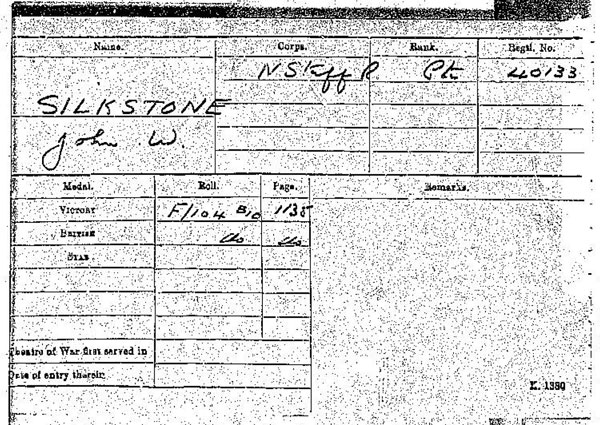 Name. Corps. Rank. Regtl. No.
N Staff R. Pte 40133
SILKSTONE
John W.
Medal. Roll. Page. Remarks.
VICTORY F/104 B10 1135
BRITISH do do
STAR
Theatre of War first served in
Date of entry therein
K. 1380